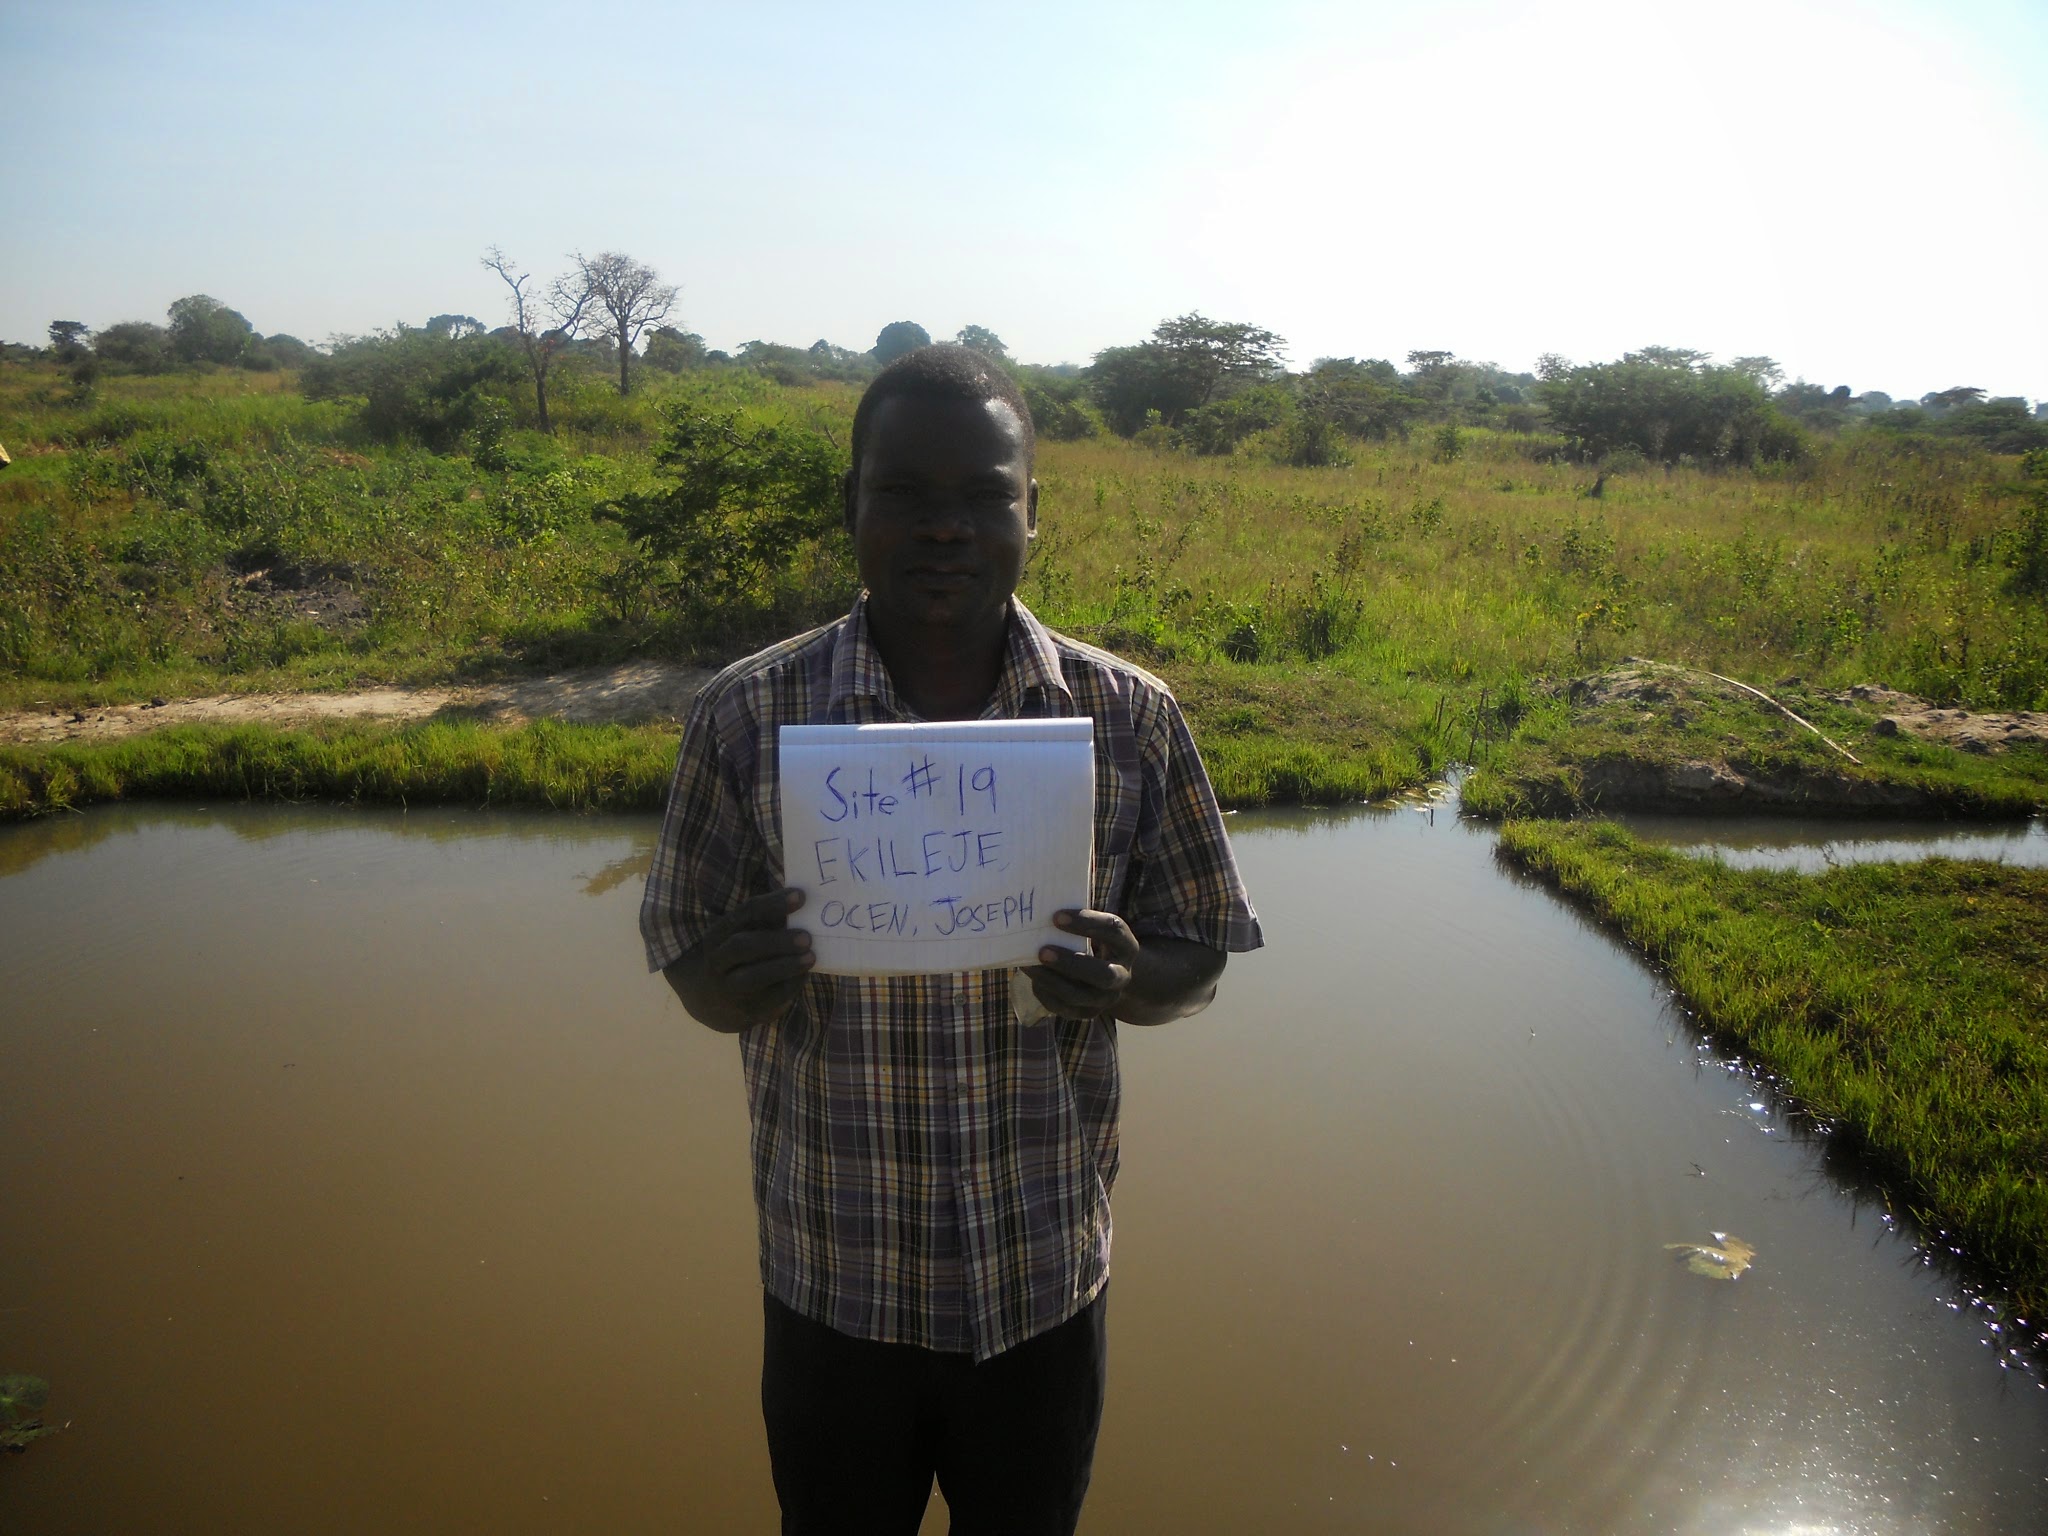 Site # 19
EKILEJE,
OCEN, JOSEPH